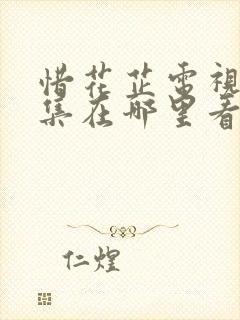 惜花芷電視
集在哪里看
仁煌